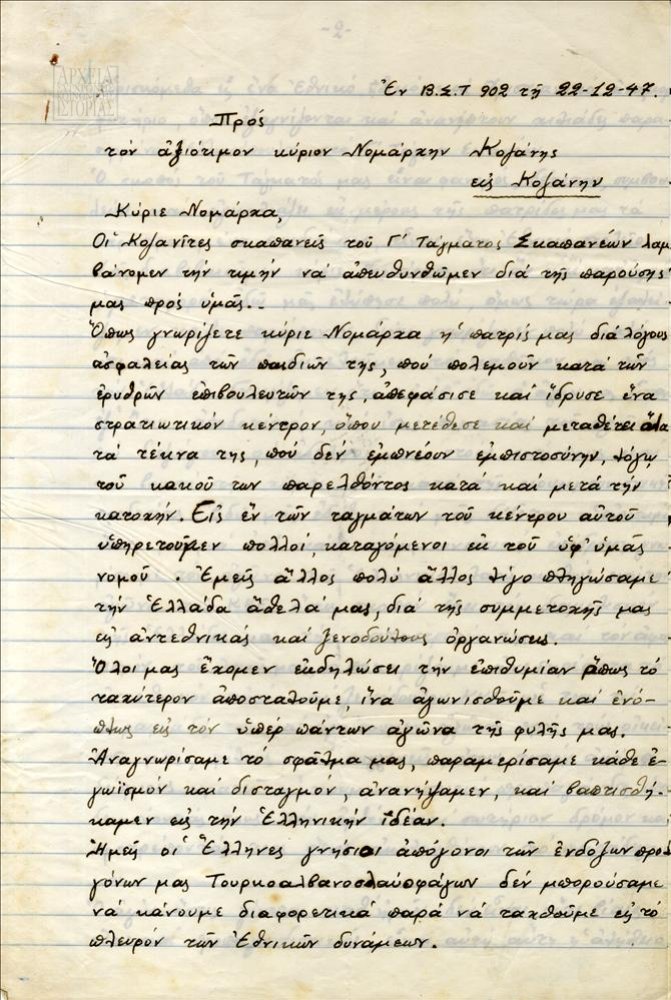 ΑΡΧΕΙΑ
ΙΣΤΟΡΙΑΣ
-2-
Ἐν Β.Σ.Τ 902 τῇ 22-12-47.
Πρός
τόν ἀξιότιμον κύριον Νομάρχην Κοζάνης
εἰς Κοζάνην
Κύριε Νομάρχα,
Οἱ Κοζανῖτες σκαπανεῖς τοῦ Γ΄ Τάγματος Σκαπανέων λαμ
βάνομεν τήν τιμήν νά ἀπευθυνθῶμεν διά τῆς παρούσης
μας πρός ὑμᾶς..
Ὅπως γνωρίζετε κύριε Νομάρχα ἡ πατρίς μας διά λόγους
ἀσφαλείας τῶν παιδιῶν της, πού πολεμοῦν κατά τῶν
ἐρυθρῶν ἐπιβουλευτῶν της, ἀπεφάσισε καί ἵδρυσε ἕνα
στρατιωτικόν κέντρον, ὅπου μετέθεσε καί μεταθέτει ὅλα
τά τέκνα της, πού δέν ἐμπνέουν ἐμπιστοσύνην, λόγῳ
τοῦ κακοῦ των παρελθόντος κατά καί μετά τήν
κατοχήν. Εἰς ἕν τῶν ταγμάτων τοῦ κέντρου αὐτοῦ
ὑπηρετοῦμεν πολλοί, καταγόμενοι ἐκ τοῦ ὑφ' ὑμᾶς
νομοῦ. Ἐμεῖς ἄλλος πολύ ἄλλος λίγο πληγώσαμε
τήν Ἑλλάδα ἄθελά μας, διά τῆς συμμετοχῆς μας
εἰς ἀντεθνικάς καί ξενοδούλους ὀργανώσεις.
Ὅλοι μας ἔχομεν ἐκδηλώσει τήν ἐπιθυμίαν ὅπως τό
ταχύτερον ἀποσταλοῦμε, ἵνα ἀγωνισθοῦμε καί ἐνό-
πλως εἰς τόν ὑπέρ πάντων ἀγῶνα τῆς φυλῆς μας.
Ἀναγνωρίσαμε τό σφάλμα μας, παραμερίσαμε κάθε ἐ-
γωϊσμόν καί δισταγμόν, ἀνανήψαμεν, καί βαπτισθή-
καμεν εἰς τήν Ἑλληνικήν ἰδέαν.
Ἡμεῖς οἱ Ἕλληνες γνήσιοι ἀπόγονοι τῶν ἐνδόξων προ
γόνων μας Τουρκοαλβανοσλαυοφάγων δέν μπορούσαμε
νά κάνουμε διαφορετικά παρά νά ταχθοῦμε εἰς τό
πλευρόν τῶν Ἐθνικῶν δυνάμεων.